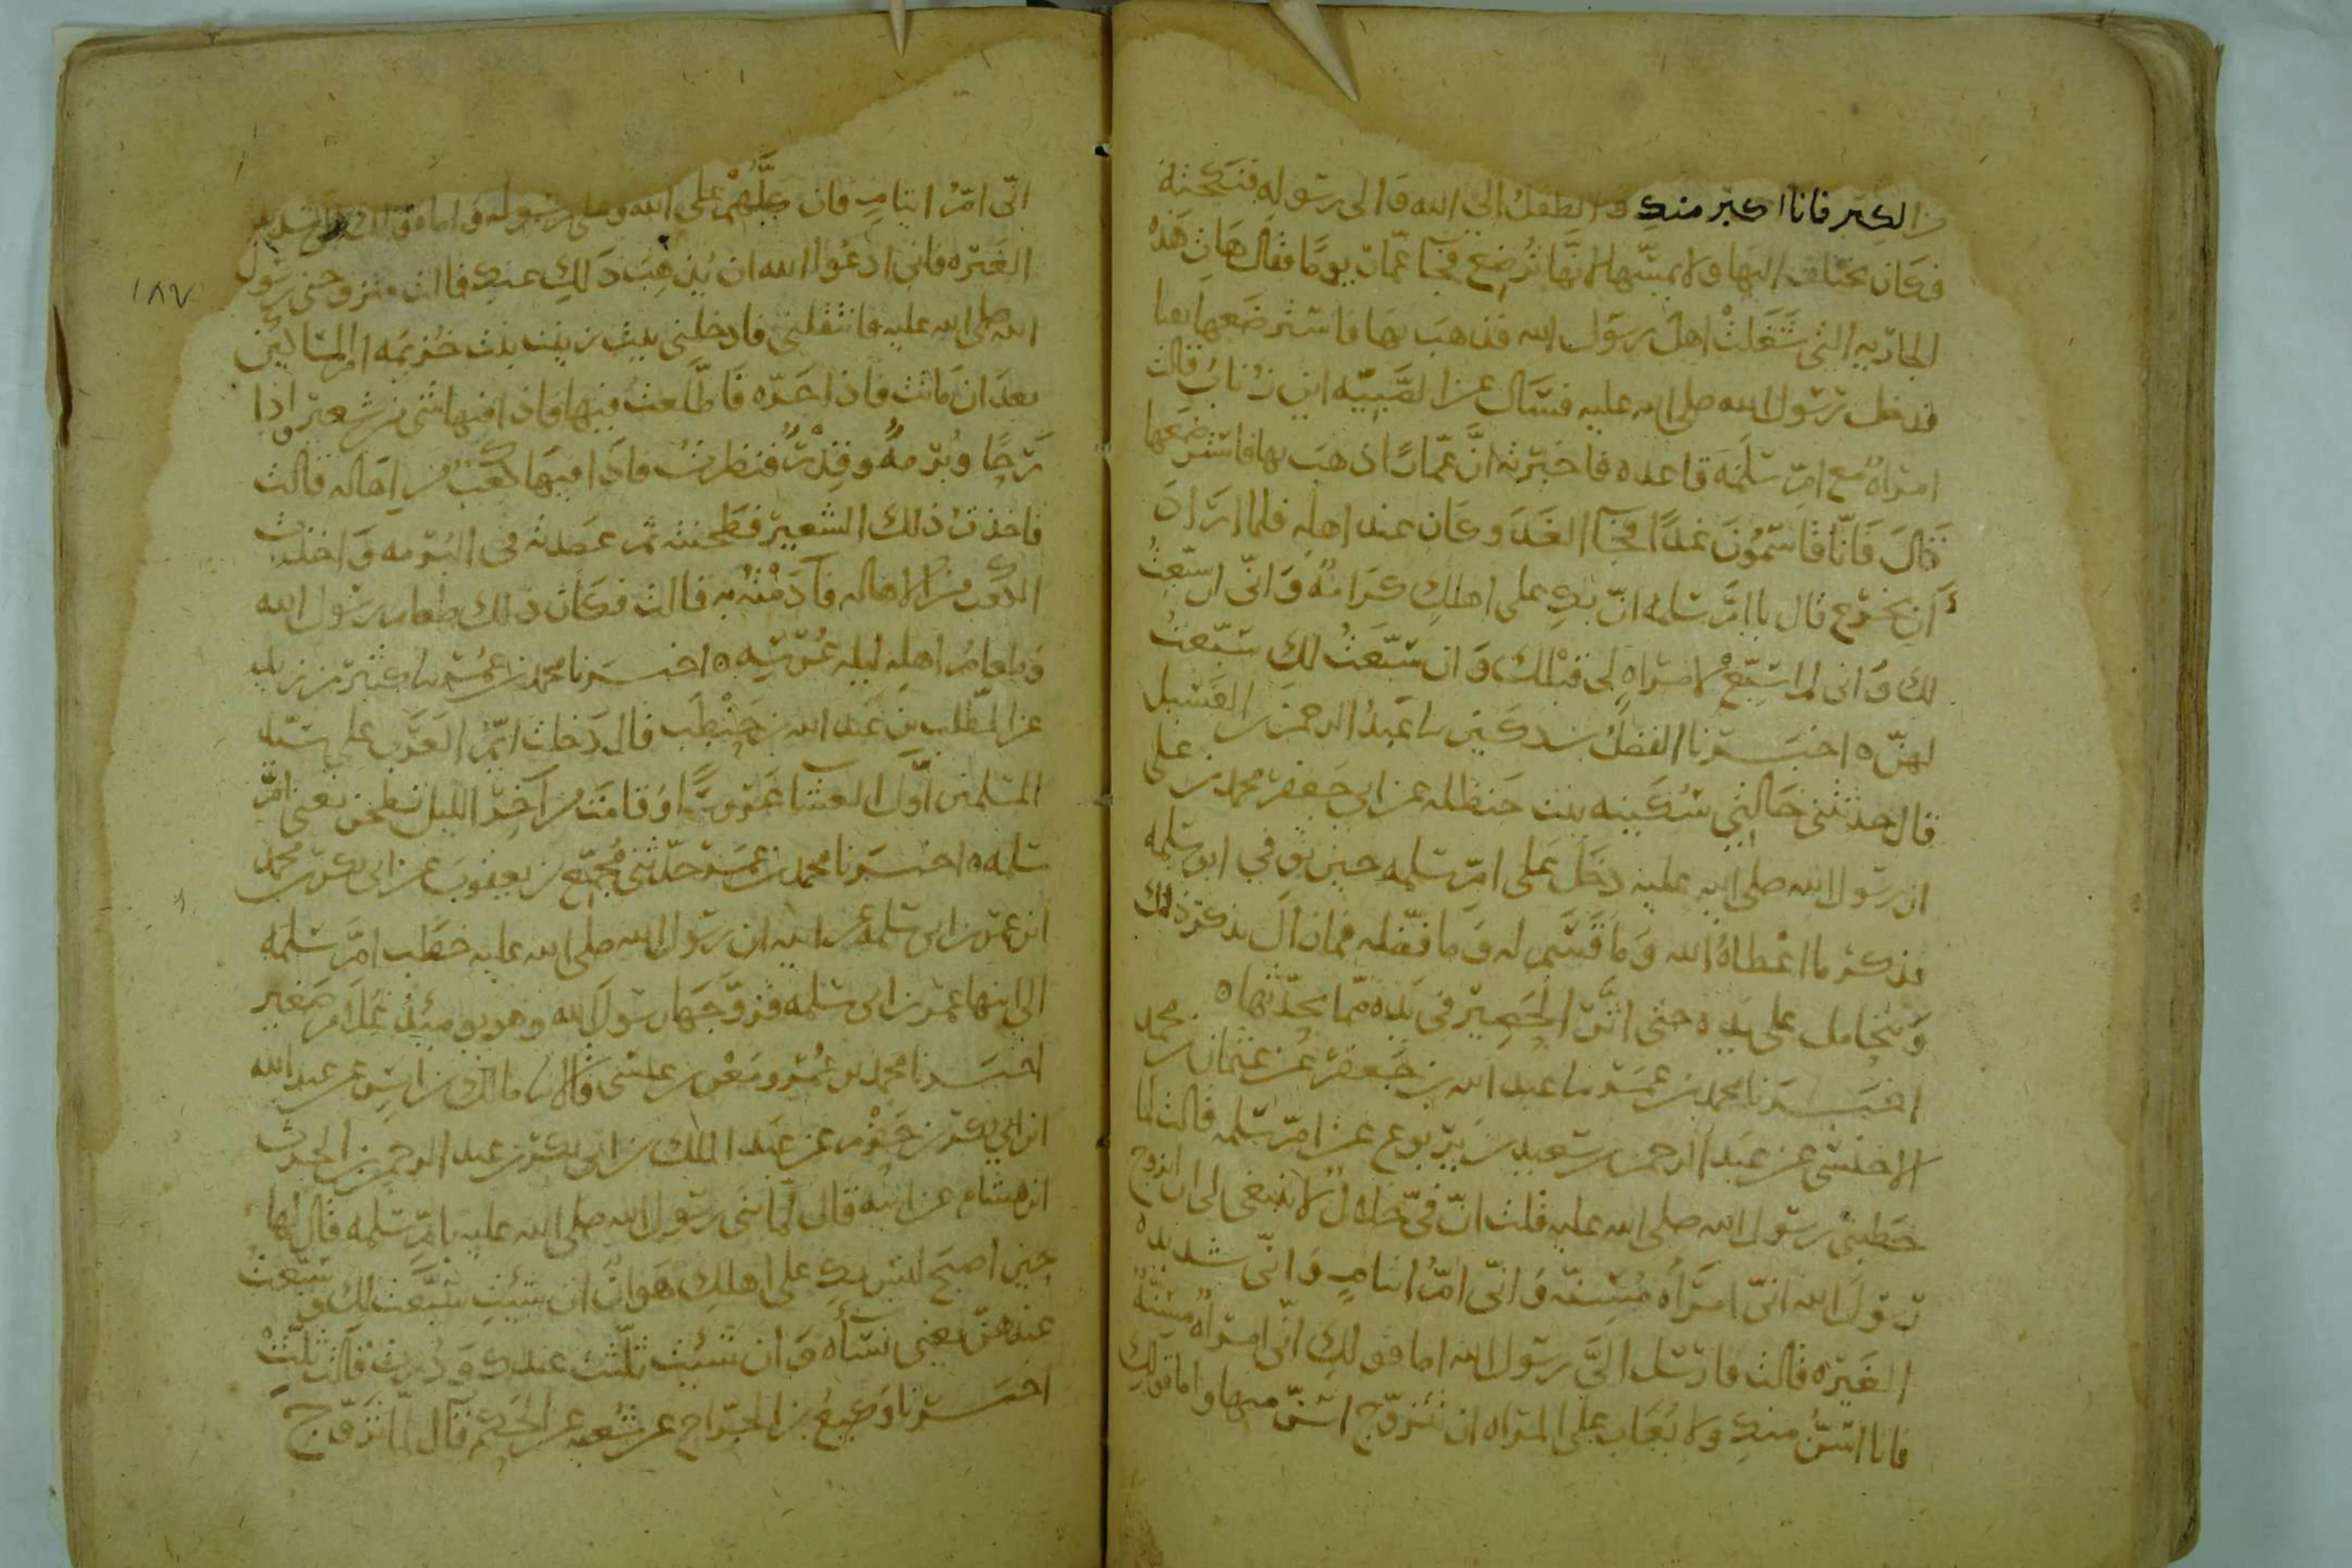 من الكبر فانا اكبر منك والطفل الى الله والى رسوله فنكحته
فكان يختلف اليها ولا يمسها لانها ترضع فجا عمار يوما فقال هات هذه
الجاريه التي شغلت اهل رسول الله فذهب بها فاسترضعها بقبا
فدخل رسول الله صلى الله عليه فسال عن الصبيه اين زناب قالت
امراة مع ام سلمة قاعده فاخبرته ان عمارا ذهب بها فاسترضعها
قال فانا قاسمون غدا فجا الغد وكان عند اهله فلما اراد
ان يخرج قال يا ام سلمه ان بك على اهلك كرامة واني ان سبعت
لك واني لم اسبع لامراه لي قبلك وان سبعت لك سبعت
لهن ه اخبرنا الفضل بن دكين نا عبد الرحمن بن الغسيل
قال حدثتني خالتي سكينه بنت حنظله عن ابي جعفر محمد بن علي
ان رسول الله صلى الله عليه دخل على ام سلمه حين توفي ابو سلمه
فذكر ما اعطاه الله وما قسم له وما فضله فما زال يذكر ذلك
ويتحامل على يده حتى اثر الحصير في يده مما يحدثها ه
اخبرنا محمد بن عمر نا عبد الله بن جعفر عن عثمان بن محمد
الاخنسي عن عبد الرحمن بن سعيد بن يربوع عن ام سلمه قالت لما
خطبني رسول الله صلى الله عليه قلت ان في خلالا لا ينبغي لي ان اتزوج
رسول الله اني امراه مسنه واني ام ايتام واني شديده
الغيره قالت فارسل الي رسول الله اما قولك اني امراة مسنة
فانا اسن منك ولا يعاب على المراه ان تتزوج اسن منها واما قولك
اني ام ايتام فان كلهم على الله وعلى رسوله واما قولك اني شديده
الغيره فاني ادعوا الله ان يذهب ذلك عنك قالت فتزوجني رسول
الله صلى الله عليه فانتقلني فادخلني بيت زينب بنت خزيمه ام المساكين
بعد ان ماتت فاذا جره فاطلعت فيها فاذا فيها شي من شعير واذا
رحا وبرمة وقدر فنظرت فاذا فيها كعب من اهاله قالت
فاخذت ذلك الشعير فطحنته ثم عصدته في البرمه واخذت
الكعب من الاهاله فادمته به قالت فكان ذلك طعام رسول الله
وطعام اهله ليله عرسه ه اخبرنا محمد بن عمر نا كثير بن زيد
عن المطلب بن عبد الله بن حنطب قال دخلت ايم العرب على سيد
المسلمين اول العشا عروسا وقامت من آخر الليل تطحن يعني ام
سلمه ه اخبرنا محمد بن عمر حدثني مجمع بن يعقوب عن ابي بكر بن محمد
ابن عمر بن ابي سلمه عن ابيه ان رسول الله صلى الله عليه خطب ام سلمه
الى ابنها عمر بن ابي سلمه فزوجها رسول الله وهو يومئذ غلام صغير
اخبرنا محمد بن عمر ومعن بن عيسى قالا نا مالك بن انس عن عبد الله
ابن ابي بكر بن حزم عن عبد الملك بن ابي بكر بن عبد الرحمن بن الحرث
ابن هشام عن ابيه قال لما بنى رسول الله صلى الله عليه بام سلمه قال لها
حين اصبح ليس بك على اهلك هوان ان شئت سبعت لك وسبعت
عندهن يعني نساه وان شئت ثلثت عندك ودرت قالت ثلث
اخبرنا وكيع بن الجراح عن شعبه عن الحكم قال لما تزوج
١٨٧